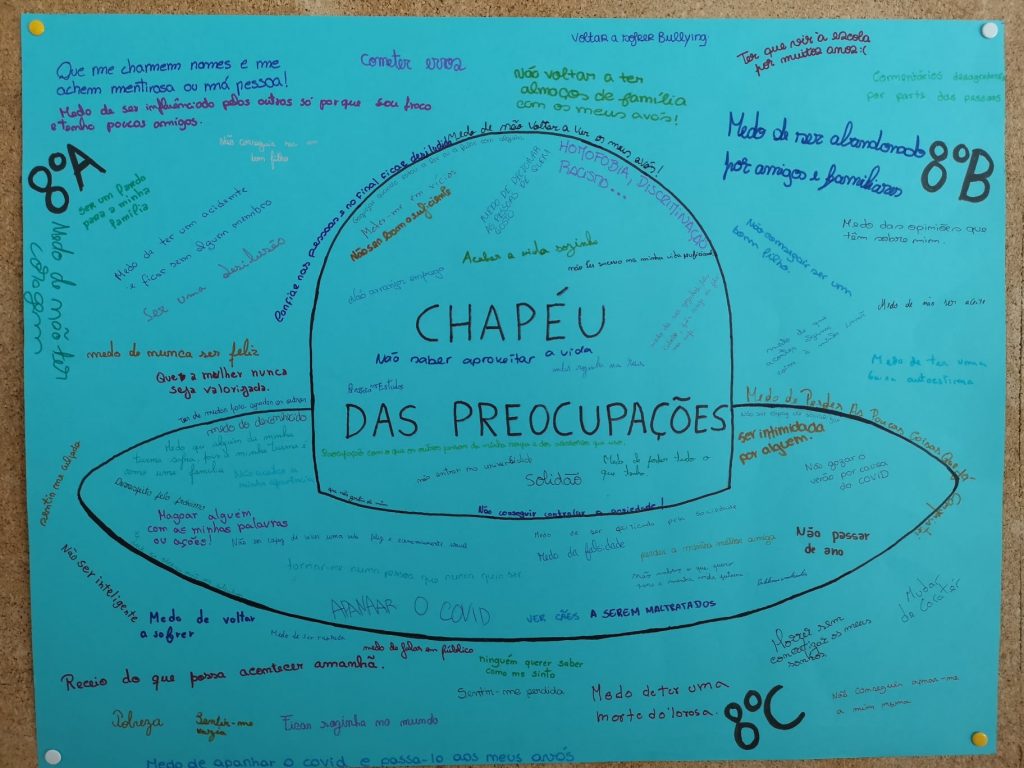 Voltar a sofrer Bullying
Que me chamem nomes e me
achem mentirosa ou má pessoa!
Cometer erros
Ter que vir à escola
por muitos anos :(
Não voltar a ter
almoços de família
com os meus avós!
Comentários desagradáveis
por parte das pessoas
Medo de ser influênciado pelos outros só porque sou fraco
e tenho poucos amigos.
Não conseguir ser um
bom filho
Medo de não voltar a ver os meus avós!
Medo de ser abandonado
por amigos e familiares
8ºA
8ºB
Ser um Fardo
para a minha
família
HOMOFOBIA, DISCRIMINAÇÃO
RACISMO...
MEDO DE DECEPCIONAR
AS PESSOAS DE QUEM
GOSTO
Meter-me em vícios
Não ser bom o suficiente
Confiar nas pessoas e no final ficar desiludida
Medo de não ter
coragem
Medo de ter um acidente
e ficar sem algum membro
Ser uma desilusão
Medo das opiniões que
têm sobre mim.
Não conseguir ser um
bom filho.
Acabar a vida sozinho
não ter sucesso na minha vida profissional
Não arranjar emprego
Medo de não ser aceite
CHAPÉU
medo de nunca ser feliz
Não saber aproveitar a vida
Medo de ter uma
baixa autoestima
Que a mulher nunca
seja valorizada.
andar sozinha na rua
Medo de Perder As Poucas Coisas Que Já
DAS PREOCUPAÇÕES
medo do desconhecido
Medo que alguém da minha
turma sofra, pois a minha turma é
como uma família
ser intimidada
por alguém.
Preocupação com o que os outros pensam da minha roupa e dos acessórios que uso.
não entrar na universidade
Medo de perder tudo o
que tenho
Não gozar o
verão por causa
do COVID
Solidão
sentir-me culpada
Não conseguir controlar a ansiedade!
Magoar alguém
com as minhas palavras
ou ações!
Medo de ser criticada pela sociedade
Medo da falsidade
perder a minha melhor amiga
Não passar
de ano
Não ser inteligente
tornar-me numa pessoa que nunca quis ser
APANHAR O COVID
VER CÃES A SEREM MALTRATADOS
Medo de voltar
a sofrer
Mudar
de carater
Medo de ser rejeitada
medo de falar em público
Morrer sem
concretizar os meus
sonhos
ninguém querer saber
como me sinto
Receio do que possa acontecer amanhã.
Sentir-me perdida
Medo de ter uma
morte dolorosa.
8ºC
Não conseguir amar-me
a mim mesma
Pobreza
Sentir-me
vazia
Ficar sozinha no mundo
Medo de apanhar o covid e passa-lo aos meus avós